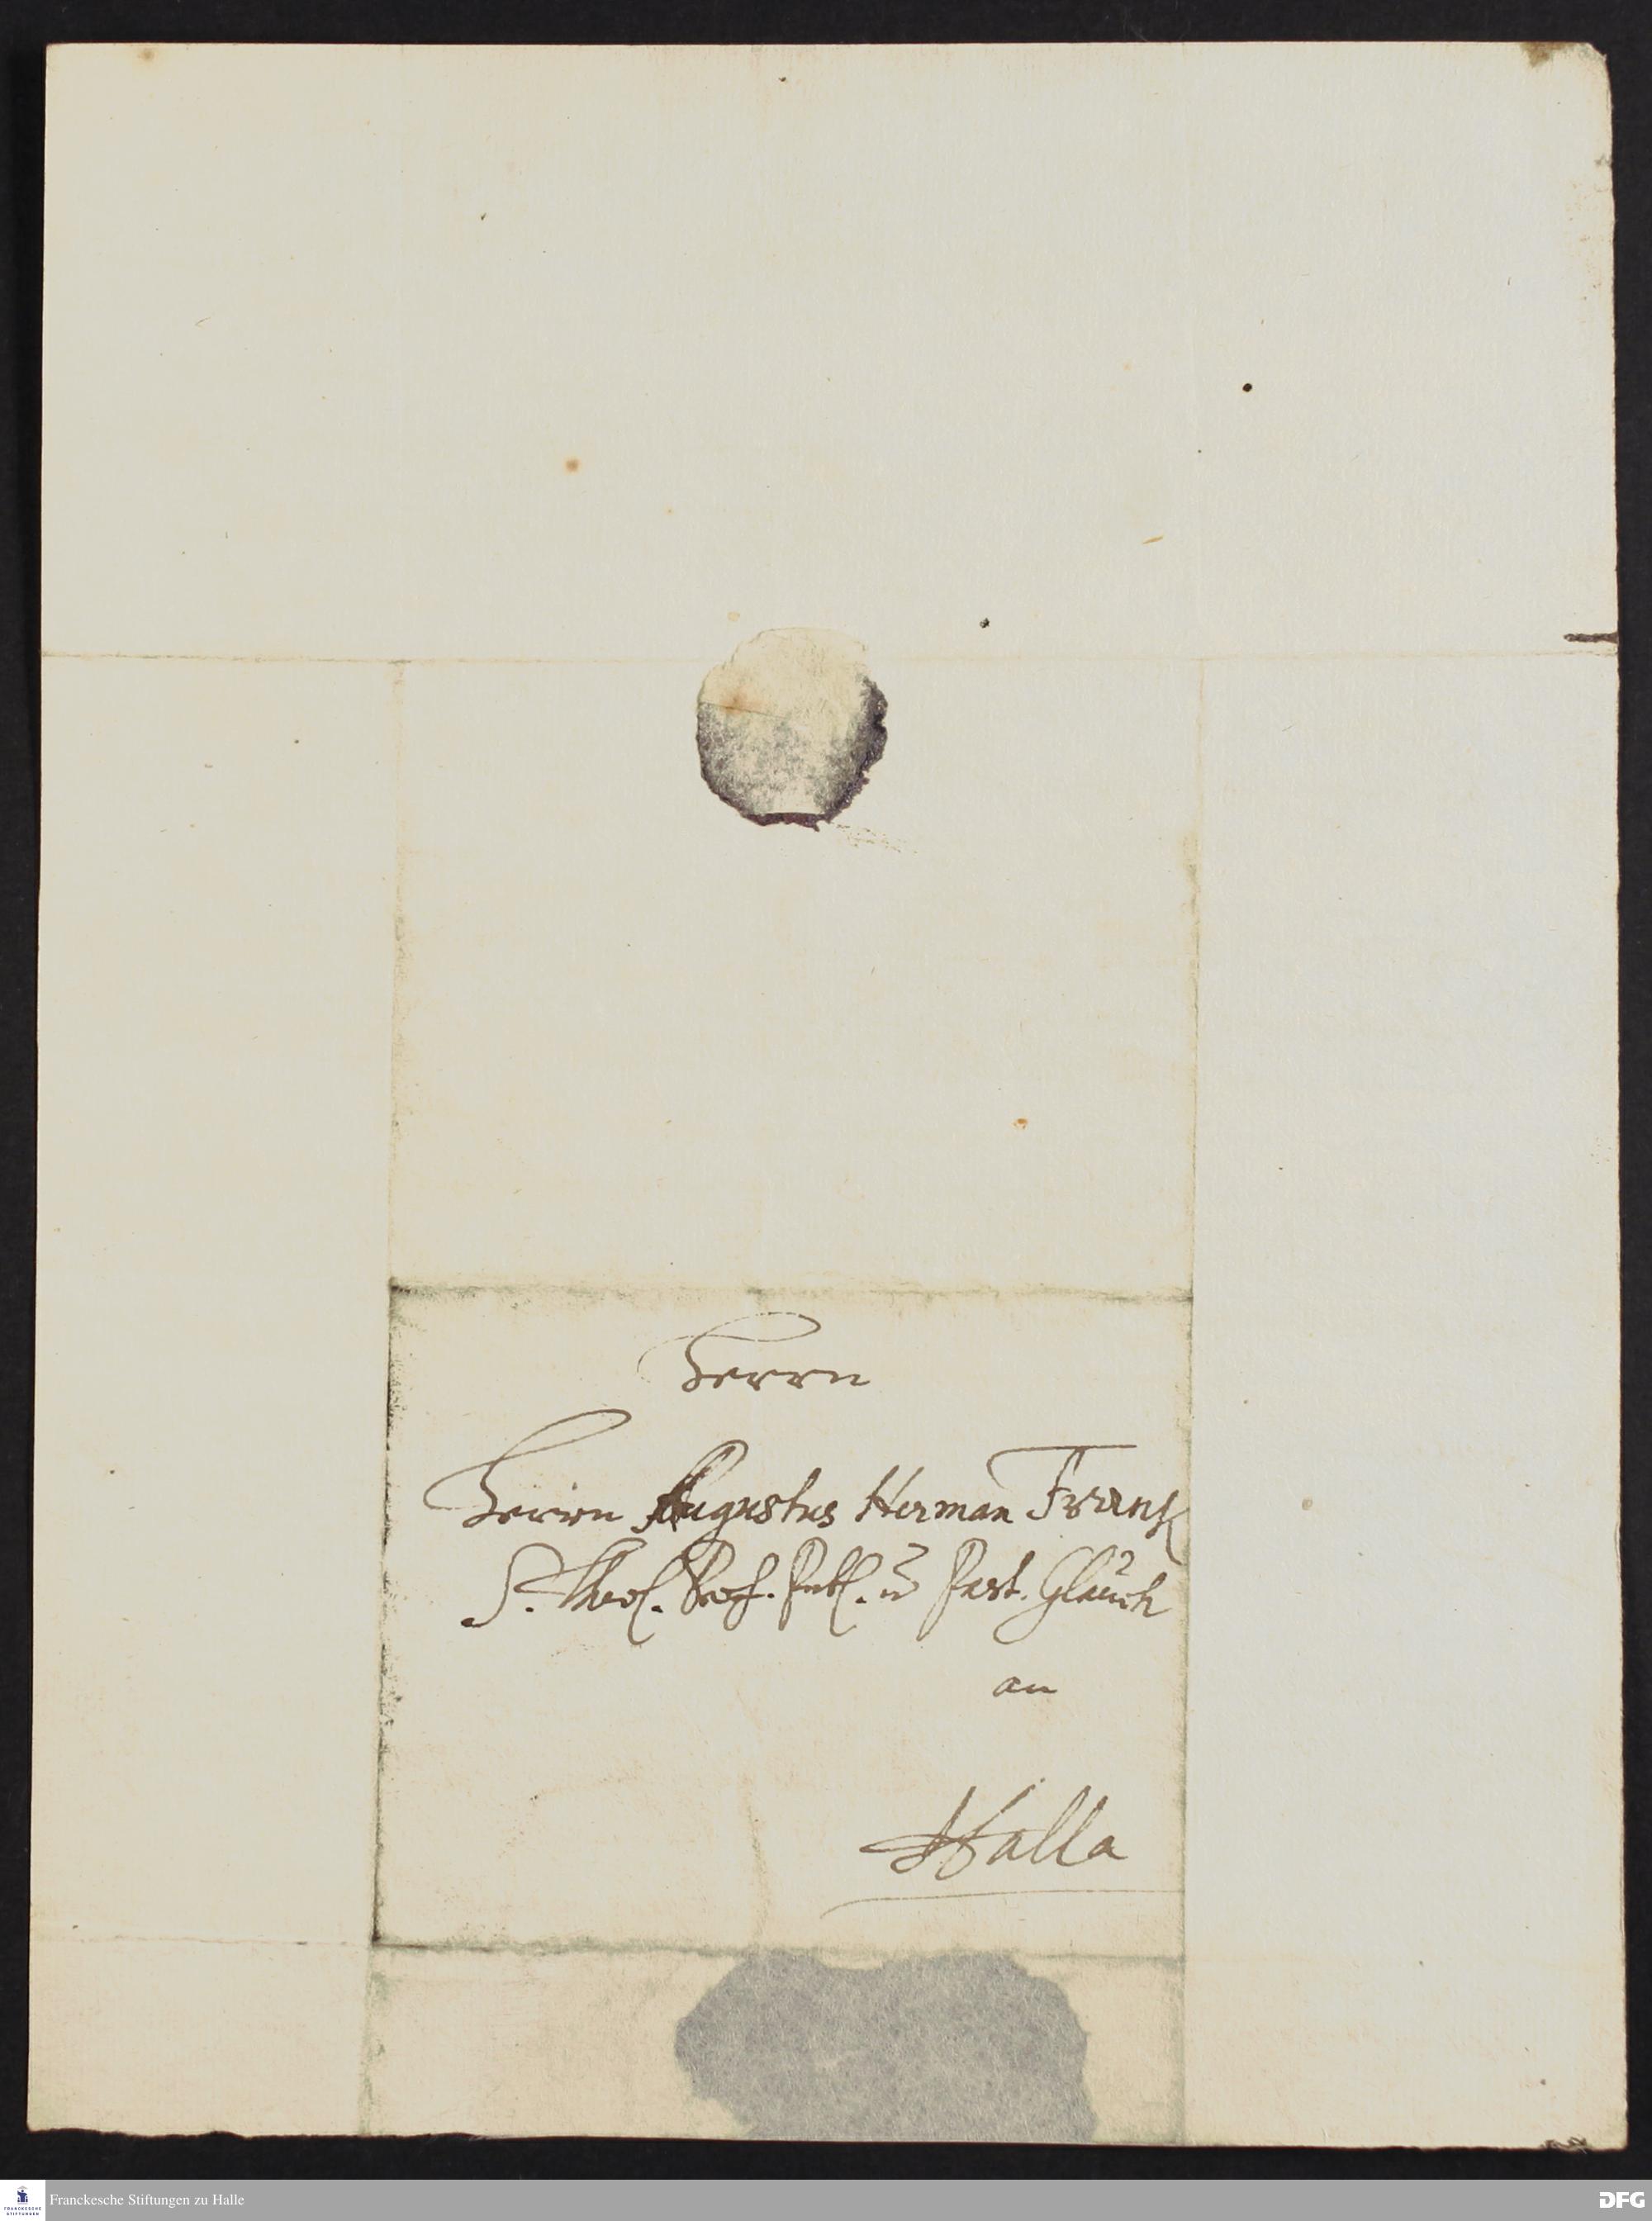 Herrn
Herrn Augustus Herman Franck
S. Theol. Prof. Publ. u Past. Glauch
an
Halla
Franckesche Stiftungen zu Halle
FRANCKESCHE
STIFTUNGEN
DFG